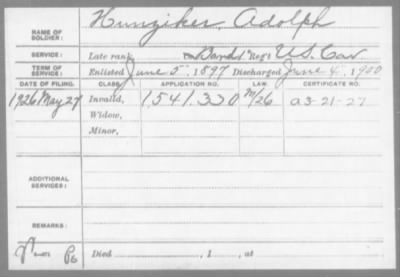 NAME OF SOLDIER: Hunziker, Adolph
SERVICE: Late rank Band, Reg't U.S. Cav.
TERM OF SERVICE: Enlisted June 5, 1897 Discharged June 4, 1900
DATE OF FILING. CLASS. APPLICATION NO. LAW. CERTIFICATE NO.
1926 May 27 Invalid, 1,541,330 M/26 A3-21-27
Widow,
Minor,
ADDITIONAL SERVICES:
REMARKS:
Died , 1 , at